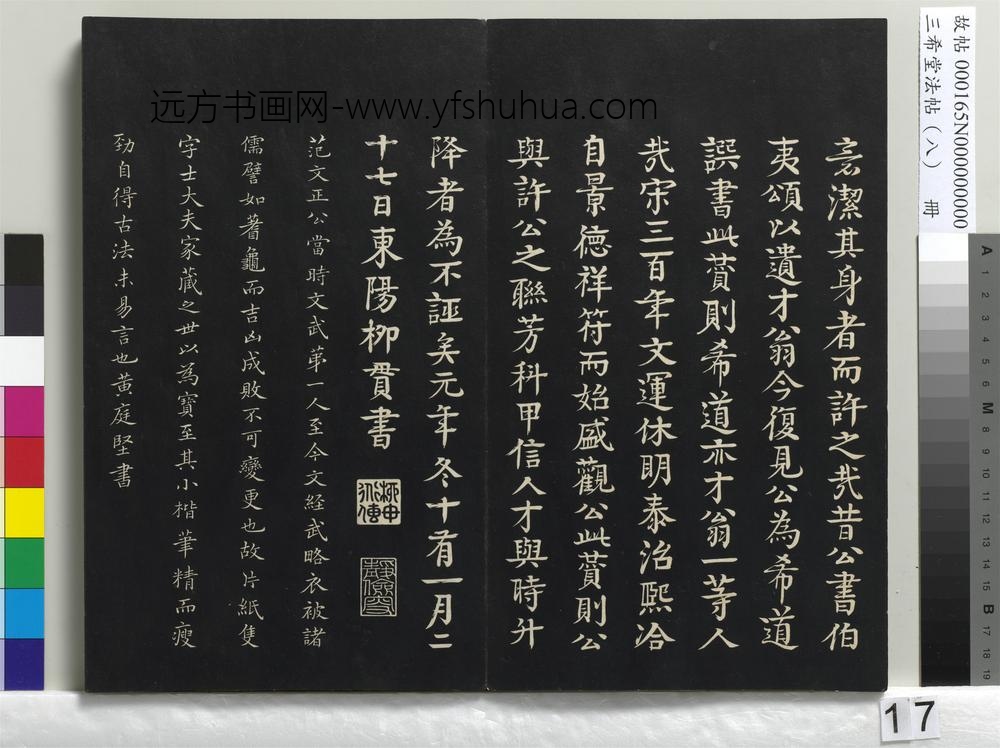 言潔其身者而許之哉昔公書伯
夷頌以遺才翁今復見公為希道
譔書此蕒則希道亦才翁一等人
哉宋三百年文運休明泰治熙洽
自景德祥符而始盛觀公此蕒則公
與許公之聯芳科甲信人才與時升
降者為不誣矣元年冬十有一月二
十七日東陽柳貫書
范文正公當時文武弟一人至今文経武略衣被諸
儒譬如蓍龜而吉凶成敗不可變更也故片紙隻
字士大夫家藏之世以為寶至其小楷筆精而瘦
勁自得古法未易言也黃庭堅書
远方书画网-www.yfshuhua.com
故帖 000165N000000000
三希堂法帖（八） 冊
17
A 1 2 3 4 5 6 M 8 9 10 11 12 13 14 15 B 17 18 19